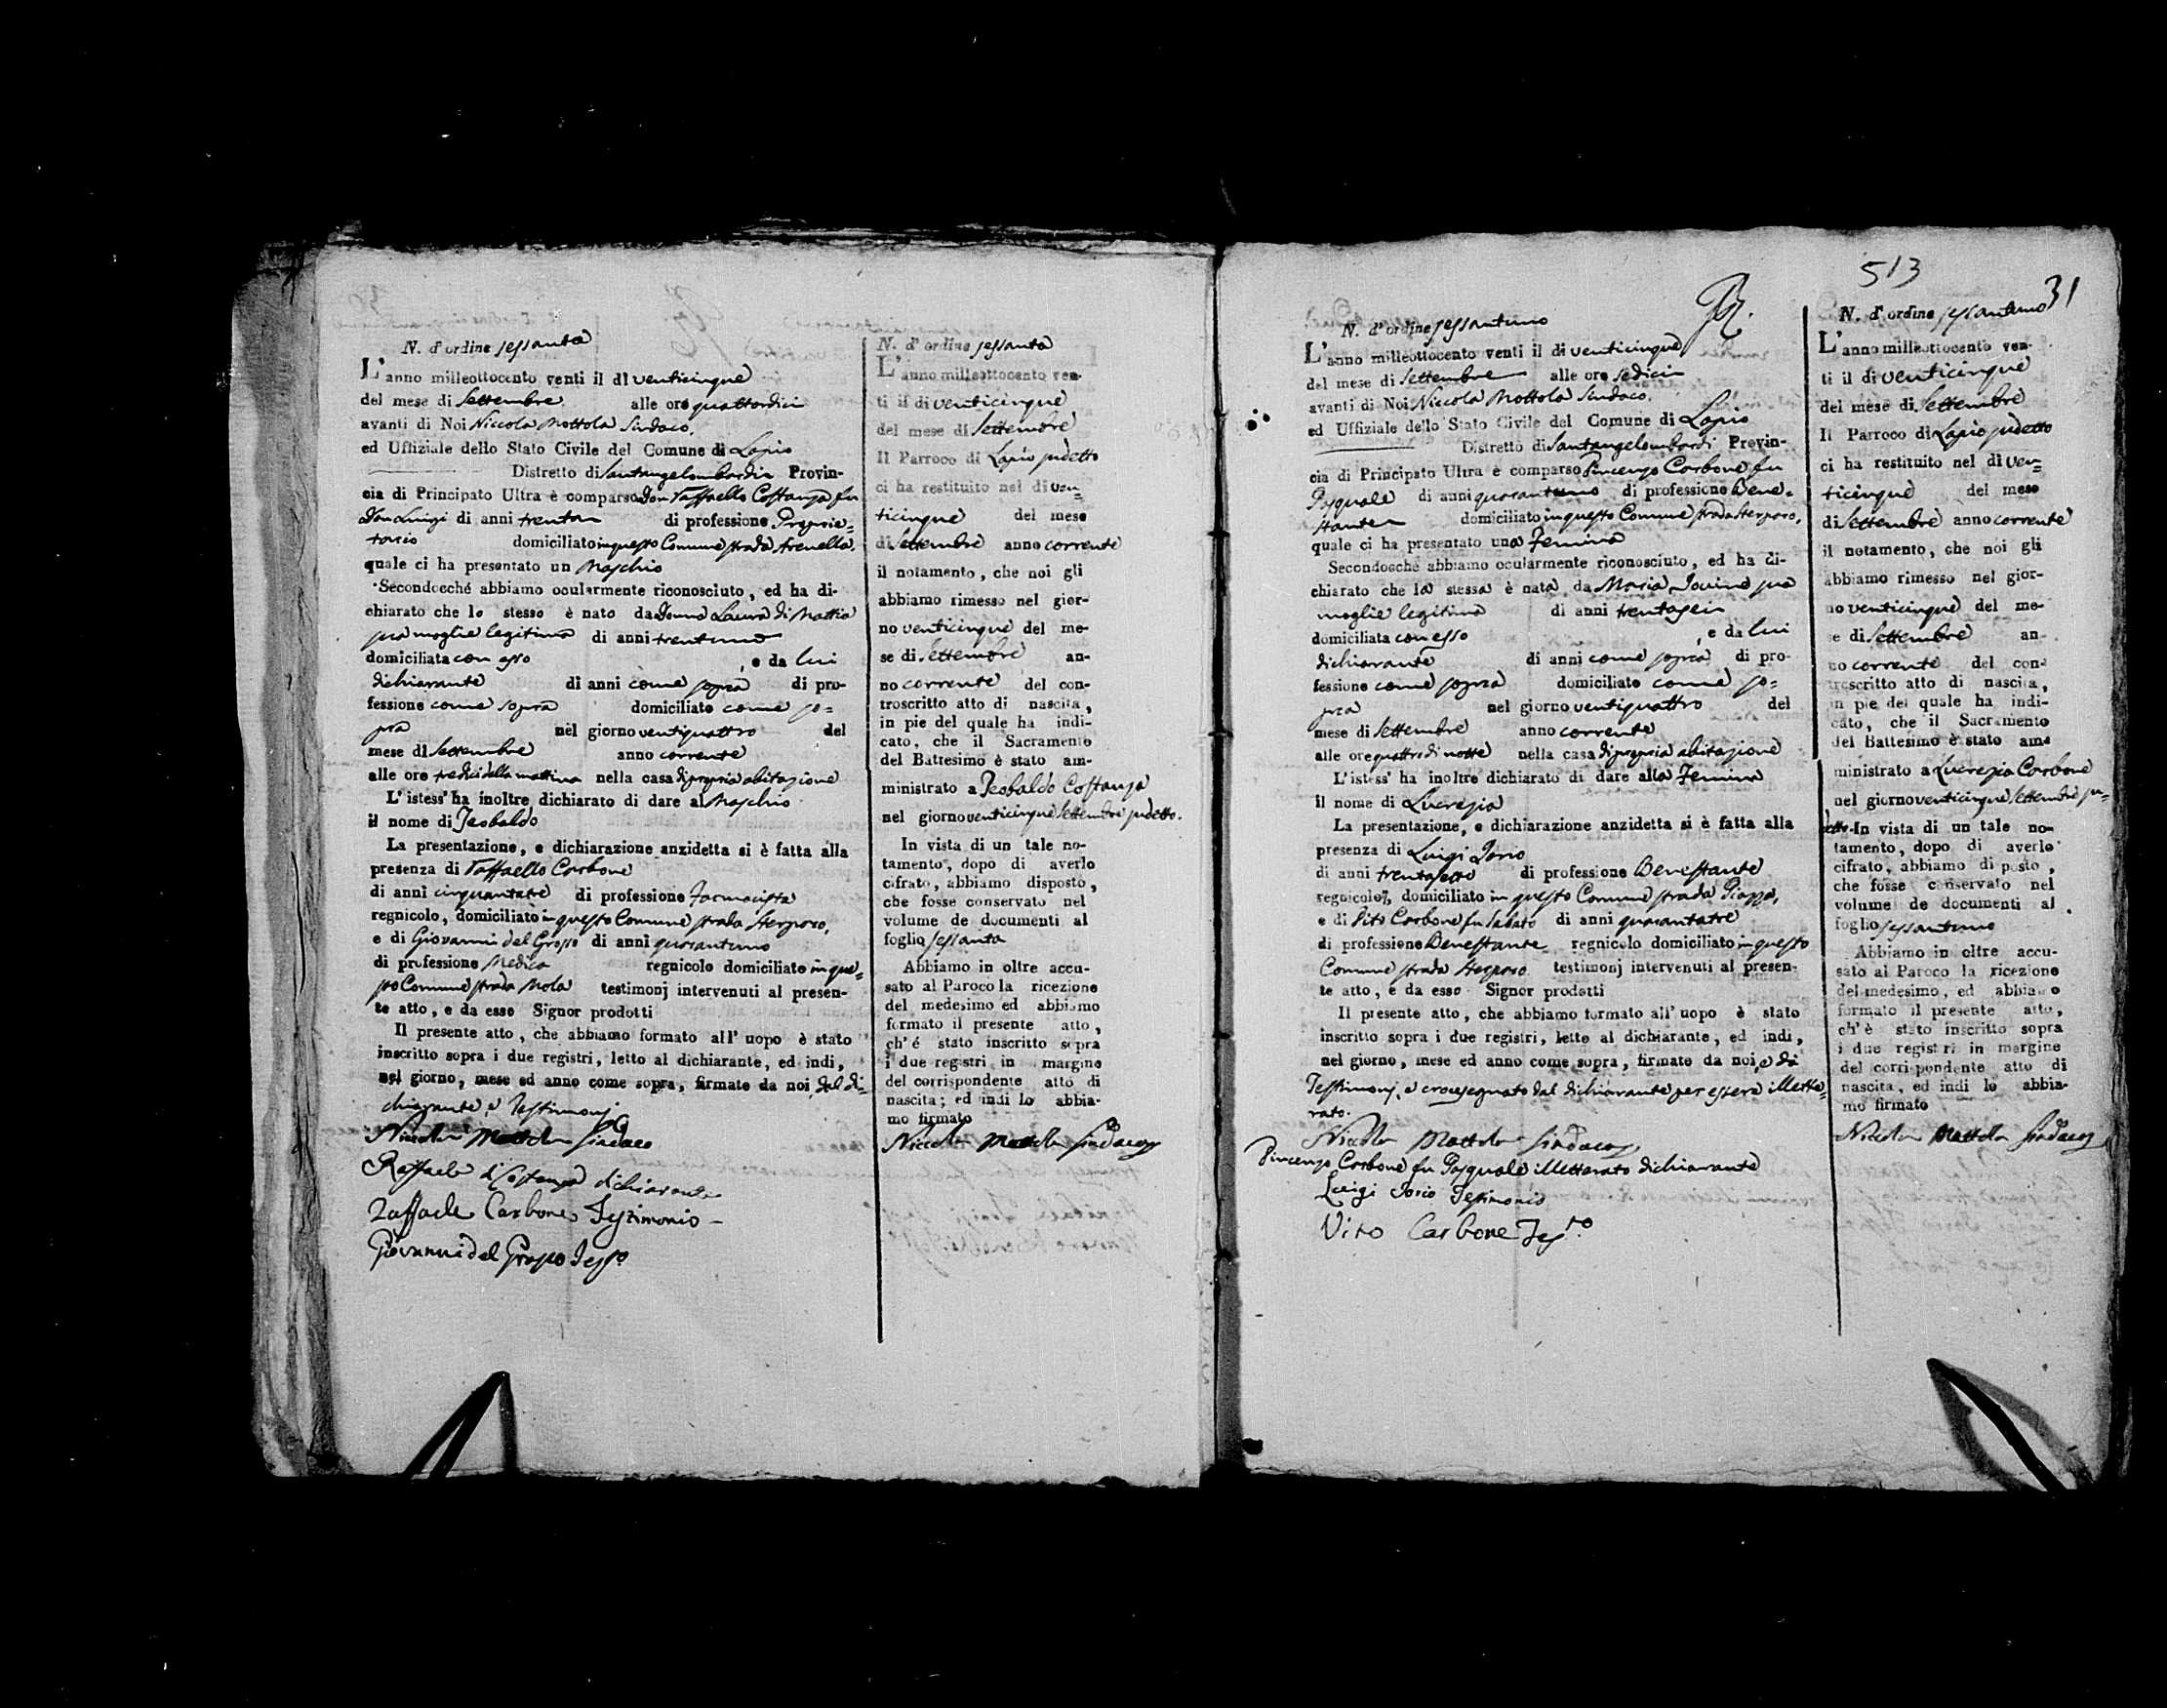 N. d'ordine sessanta
L'anno milleottocento venti il dì venticinque
del mese di Settembre alle ore quattordici
avanti di Noi Niccola Mottola Sindaco,
ed Uffiziale dello Stato Civile del Comune di Lapio
Distretto di Santangelombardi Provin-
cia di Principato Ultra è comparso Don Raffaello Costanza fu
Don Luigi di anni trenta di professione Proprie=
tario domiciliato in questo Comune strada
quale ci ha presentato un Maschio
Secondocché abbiamo ocularmente riconosciuto, ed ha di-
chiarato che lo stesso è nato da Donna Laura di Mattia
sua moglie legitima di anni trentuno
domiciliata con esso, e da lui
dichiarante di anni come sopra di pro-
fessione come sopra domiciliato come so=
pra nel giorno ventiquattro del
mese di Settembre anno corrente
alle ore tredici della mattina nella casa di propria abitazione
L'istess' ha inoltre dichiarato di dare al Maschio
il nome di Teobaldo
La presentazione, e dichiarazione anzidetta si è fatta alla
presenza di Raffaello Carbone
di anni cinquantatre di professione Farmacista
regnicolo, domiciliato in questo Comune strada Sterparo,
e di Giovanni del Grosso di anni quarantuno
di professione Medico regnicolo domiciliato in que=
sto Comune strada Mola testimonj intervenuti al presen-
te atto, e da esso Signor prodotti
Il presente atto, che abbiamo formato all' uopo è stato
inscritto sopra i due registri, letto al dichiarante, ed indi,
nel giorno, mese ed anno come sopra, firmato da noi, dal di=
chiarante, e Testimonj
Niccola Mottola Sindaco
Raffaele Costanza dichiarante
Raffaele Carbone Testimonio
Giovanni del Grosso Testo
N. d'ordine sessanta
L'anno milleottocento ven-
ti il dì venticinque
del mese di Settembre
Il Parroco di Lapio sudetto
ci ha restituito nel dì ven=
ticinque del mese
di Settembre anno corrente
il notamento, che noi gli
abbiamo rimesso nel gior-
no venticinque del me-
se di Settembre an-
no corrente del con-
troscritto atto di nascita,
in pie del quale ha indi-
cato, che il Sacramento
del Battesimo è stato am-
ministrato a Teobaldo Costanza
nel giorno venticinque Settembre sudetto.
In vista di un tale no-
tamento, dopo di averlo
cifrato, abbiamo disposto,
che fosse conservato nel
volume de documenti al
foglio sessanta
Abbiamo in oltre accu-
sato al Paroco la ricezione
del medesimo ed abbiamo
formato il presente atto,
ch'é stato inscritto sopra
i due registri in margine
del corrispondente atto di
nascita; ed indi lo abbia-
mo firmato
Niccola Mottola Sindaco
513
31
N. d'ordine sessantuno
L'anno milleottocento venti il dì venticinque
del mese di Settembre alle ore sedici
avanti di Noi Niccola Mottola Sindaco,
ed Uffiziale dello Stato Civile del Comune di Lapio
Distretto di Santangelombardi Provin-
cia di Principato Ultra è comparso Vincenzo Carbone fu
Pasquale di anni quarantuno di professione Bene=
stante domiciliato in questo Comune strada Sterparo,
quale ci ha presentato una Femina
Secondocché abbiamo ocularmente riconosciuto, ed ha di-
chiarato che la stessa è nata da Maria Iovino sua
moglie legitima di anni trentasei
domiciliata con esso, e da lui
dichiarante di anni come sopra di pro-
fessione come sopra domiciliato come so=
pra nel giorno ventiquattro del
mese di Settembre anno corrente
alle ore quattro di notte nella casa di propria abitazione
L'istess' ha inoltre dichiarato di dare alla Femina
il nome di Lucrezia
La presentazione, e dichiarazione anzidetta si è fatta alla
presenza di Luigi Iorio
di anni trentasette di professione Benestante
regnicolo, domiciliato in questo Comune strada Piazza,
e di Vito Carbone fu Sabato di anni quarantatre
di professione Benestante regnicolo domiciliato in questo
Comune strada Sterparo testimonj intervenuti al presen-
te atto, e da esso Signor prodotti
Il presente atto, che abbiamo formato all' uopo è stato
inscritto sopra i due registri, letto al dichiarante, ed indi,
nel giorno, mese ed anno come sopra, firmato da noi, e di
Testimonj, e crocesegnato dal dichiarante per essere illette=
rato.
Niccola Mottola Sindaco
Vincenzo Carbone fu Pasquale illetterato dichiarante
Luigi Iorio Testimonio
Vito Carbone Testo
N. d'ordine sessantuno
L'anno milleottocento ven-
ti il dì venticinque
del mese di Settembre
Il Parroco di Lapio sudetto
ci ha restituito nel dì ven=
ticinque del mese
di Settembre anno corrente
il notamento, che noi gli
abbiamo rimesso nel gior-
no venticinque del me-
se di Settembre an-
no corrente del con-
troscritto atto di nascita,
in pie del quale ha indi-
cato, che il Sacramento
del Battesimo è stato am-
ministrato a Lucrezia Carbone
nel giorno venticinque Settembre su=
detto. In vista di un tale no-
tamento, dopo di averlo
cifrato, abbiamo di posto,
che fosse conservato nel
volume de documenti al
foglio sessantuno
Abbiamo in oltre accu-
sato al Paroco la ricezione
del medesimo, ed abbiamo
formato il presente atto,
ch'è stato inscritto sopra
i due registri in margine
del corrispondente atto di
nascita, ed indi lo abbia-
mo firmato
Niccola Mottola Sindaco